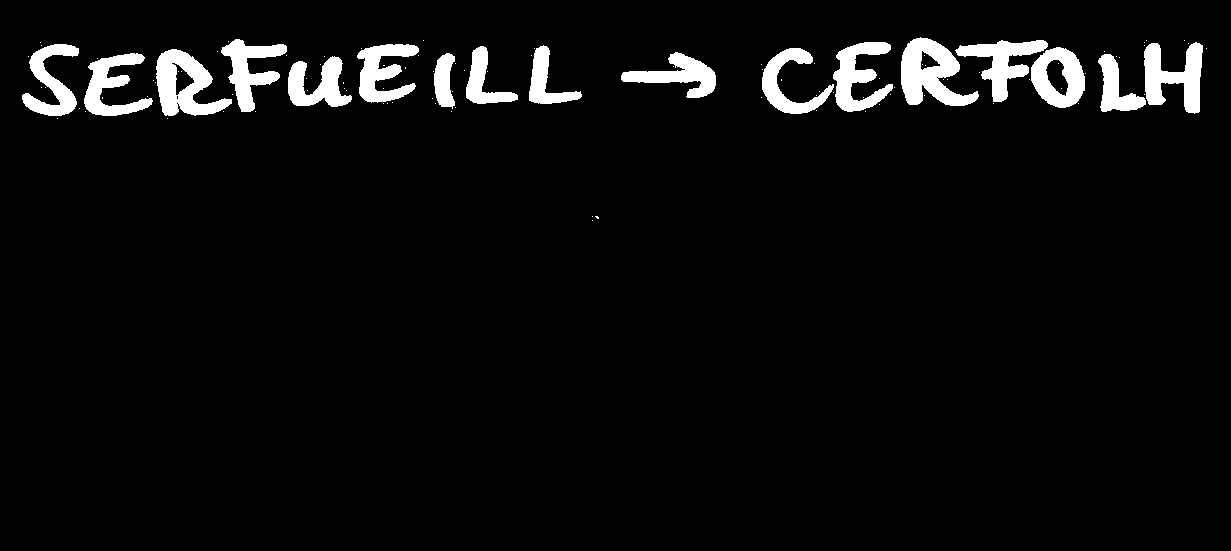 SERFUEILL → CERFOLH